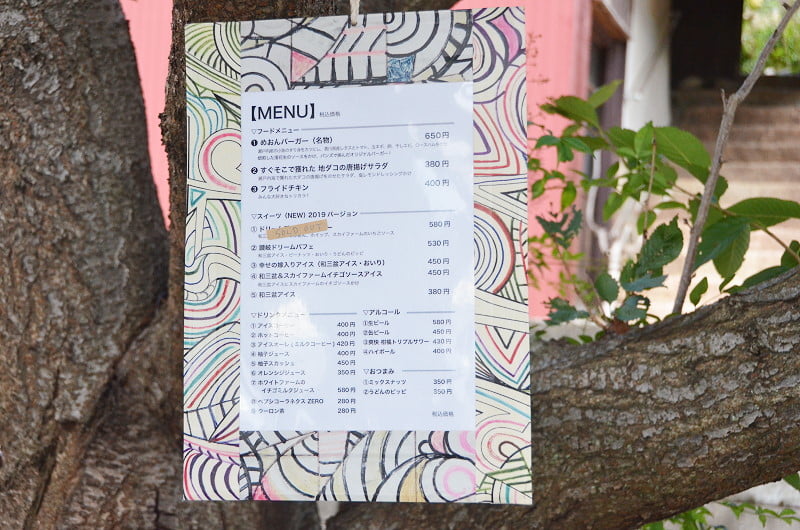 【MENU】税込価格
▽フードメニュー
❶ めおんバーガー（名物） 650円
❷ すぐそこで獲れた 地ダコの唐揚げサラダ 380円
❸ フライドチキン 400円
みんな大好きなトリカラ！
▽スイーツ（NEW）2019 バージョン
① 580円
SOLD OUT
② 讃岐ドリームパフェ 530円
和三盆アイス・ピーナッツ・おいり・うどんのピッピ
③ 幸せの嫁入りアイス（和三盆アイス・おいり） 450円
④ 和三盆&スカイファームイチゴソースアイス 450円
和三盆アイスにスカイファームのイチゴソースがけ
⑤ 和三盆アイス 380円
▽ドリンクメニュー
① アイスコーヒー 400円
② ホットコーヒー 400円
③ アイスオーレ（ミルクコーヒー）420円
④ 柚子ジュース 400円
⑤ 柚子スカッシュ 450円
⑥ オレンジジュース 350円
⑦ ホワイトファームの
イチゴミルクジュース 580円
⑧ ペプシコーラネクス ZERO 280円
⑨ ウーロン茶 280円
▽アルコール
①生ビール 580円
②缶ビール 450円
③爽快 柑橘トリプルサワー 430円
④ハイボール 400円
▽おつまみ
①ミックスナッツ 350円
②うどんのピッピ 350円
税込価格